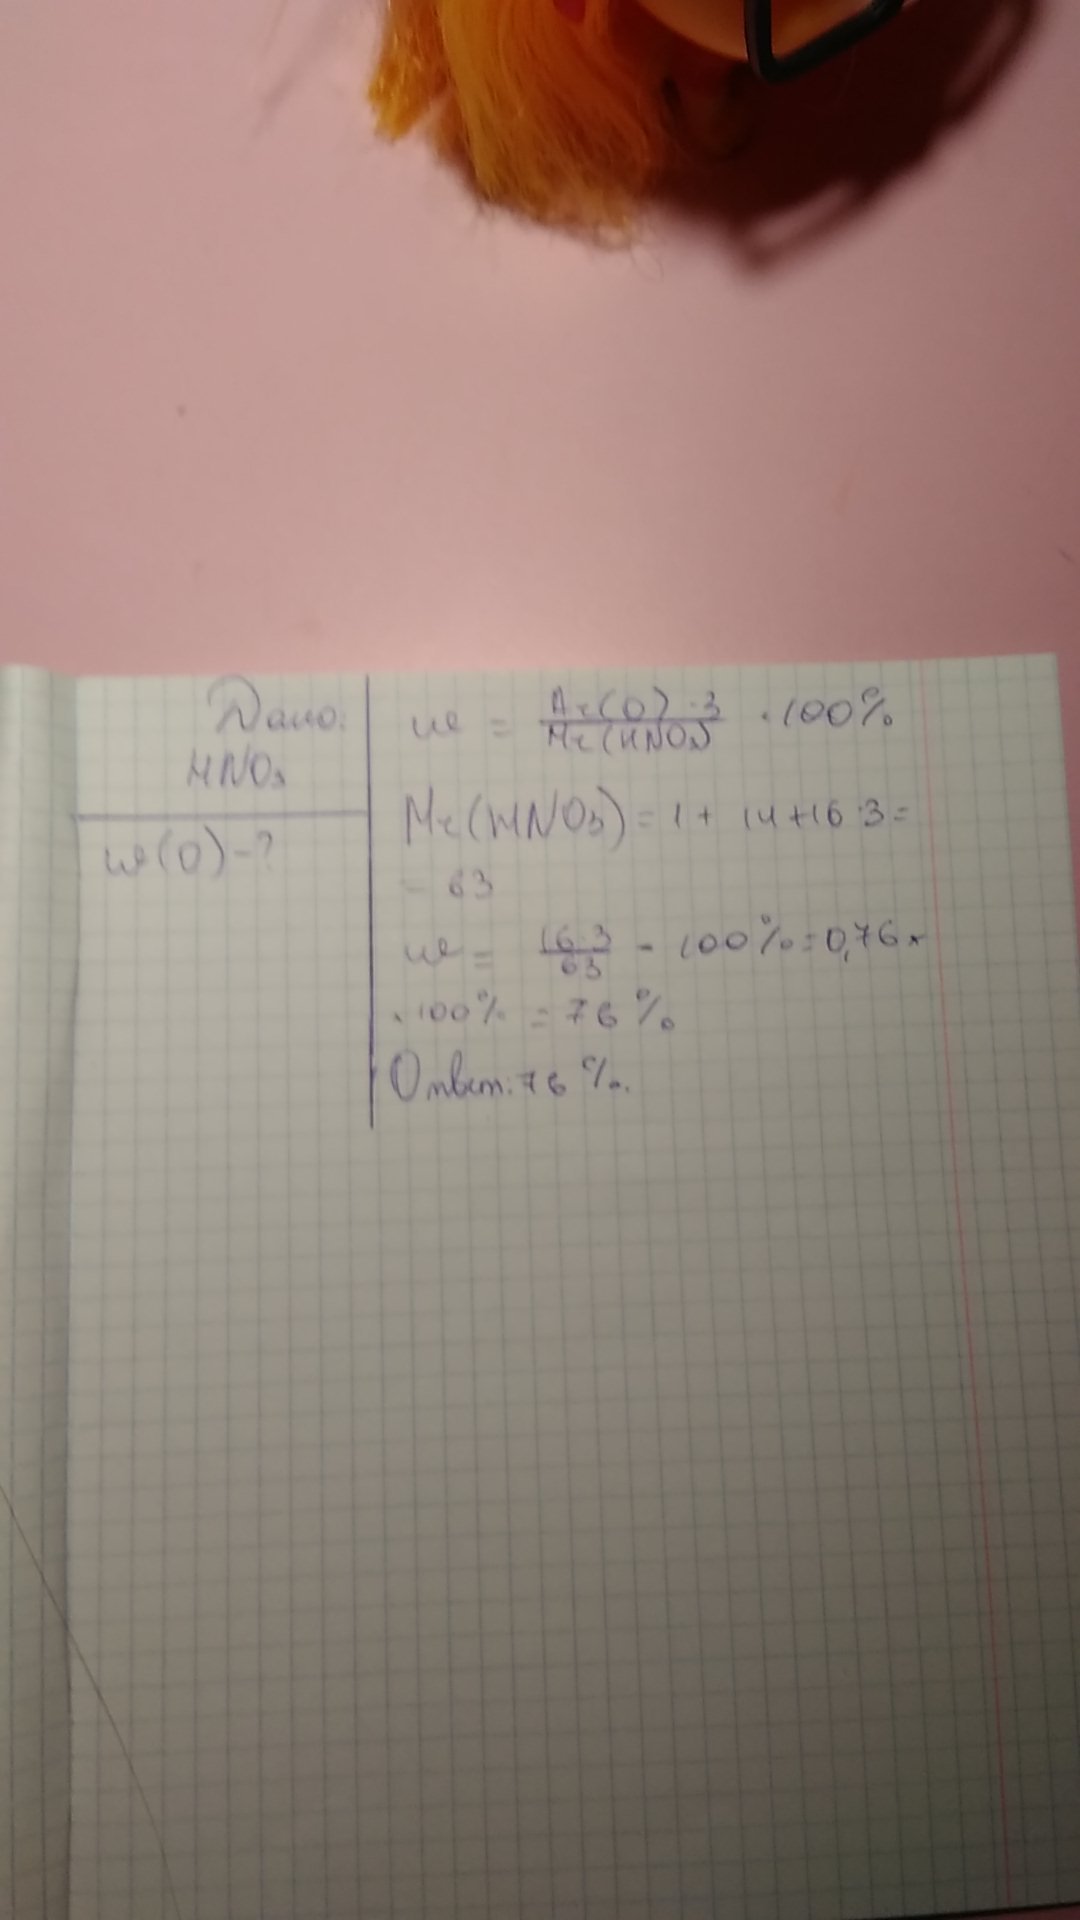 Дано:
HNO₃
w(O)-?
w = Ar(O)·3 / Mr(HNO₃) · 100%
Mr(HNO₃) = 1 + 14 + 16·3 =
= 63
w = 16·3 / 63 · 100% = 0,76 ×
· 100% = 76 %
Ответ: 76 %.